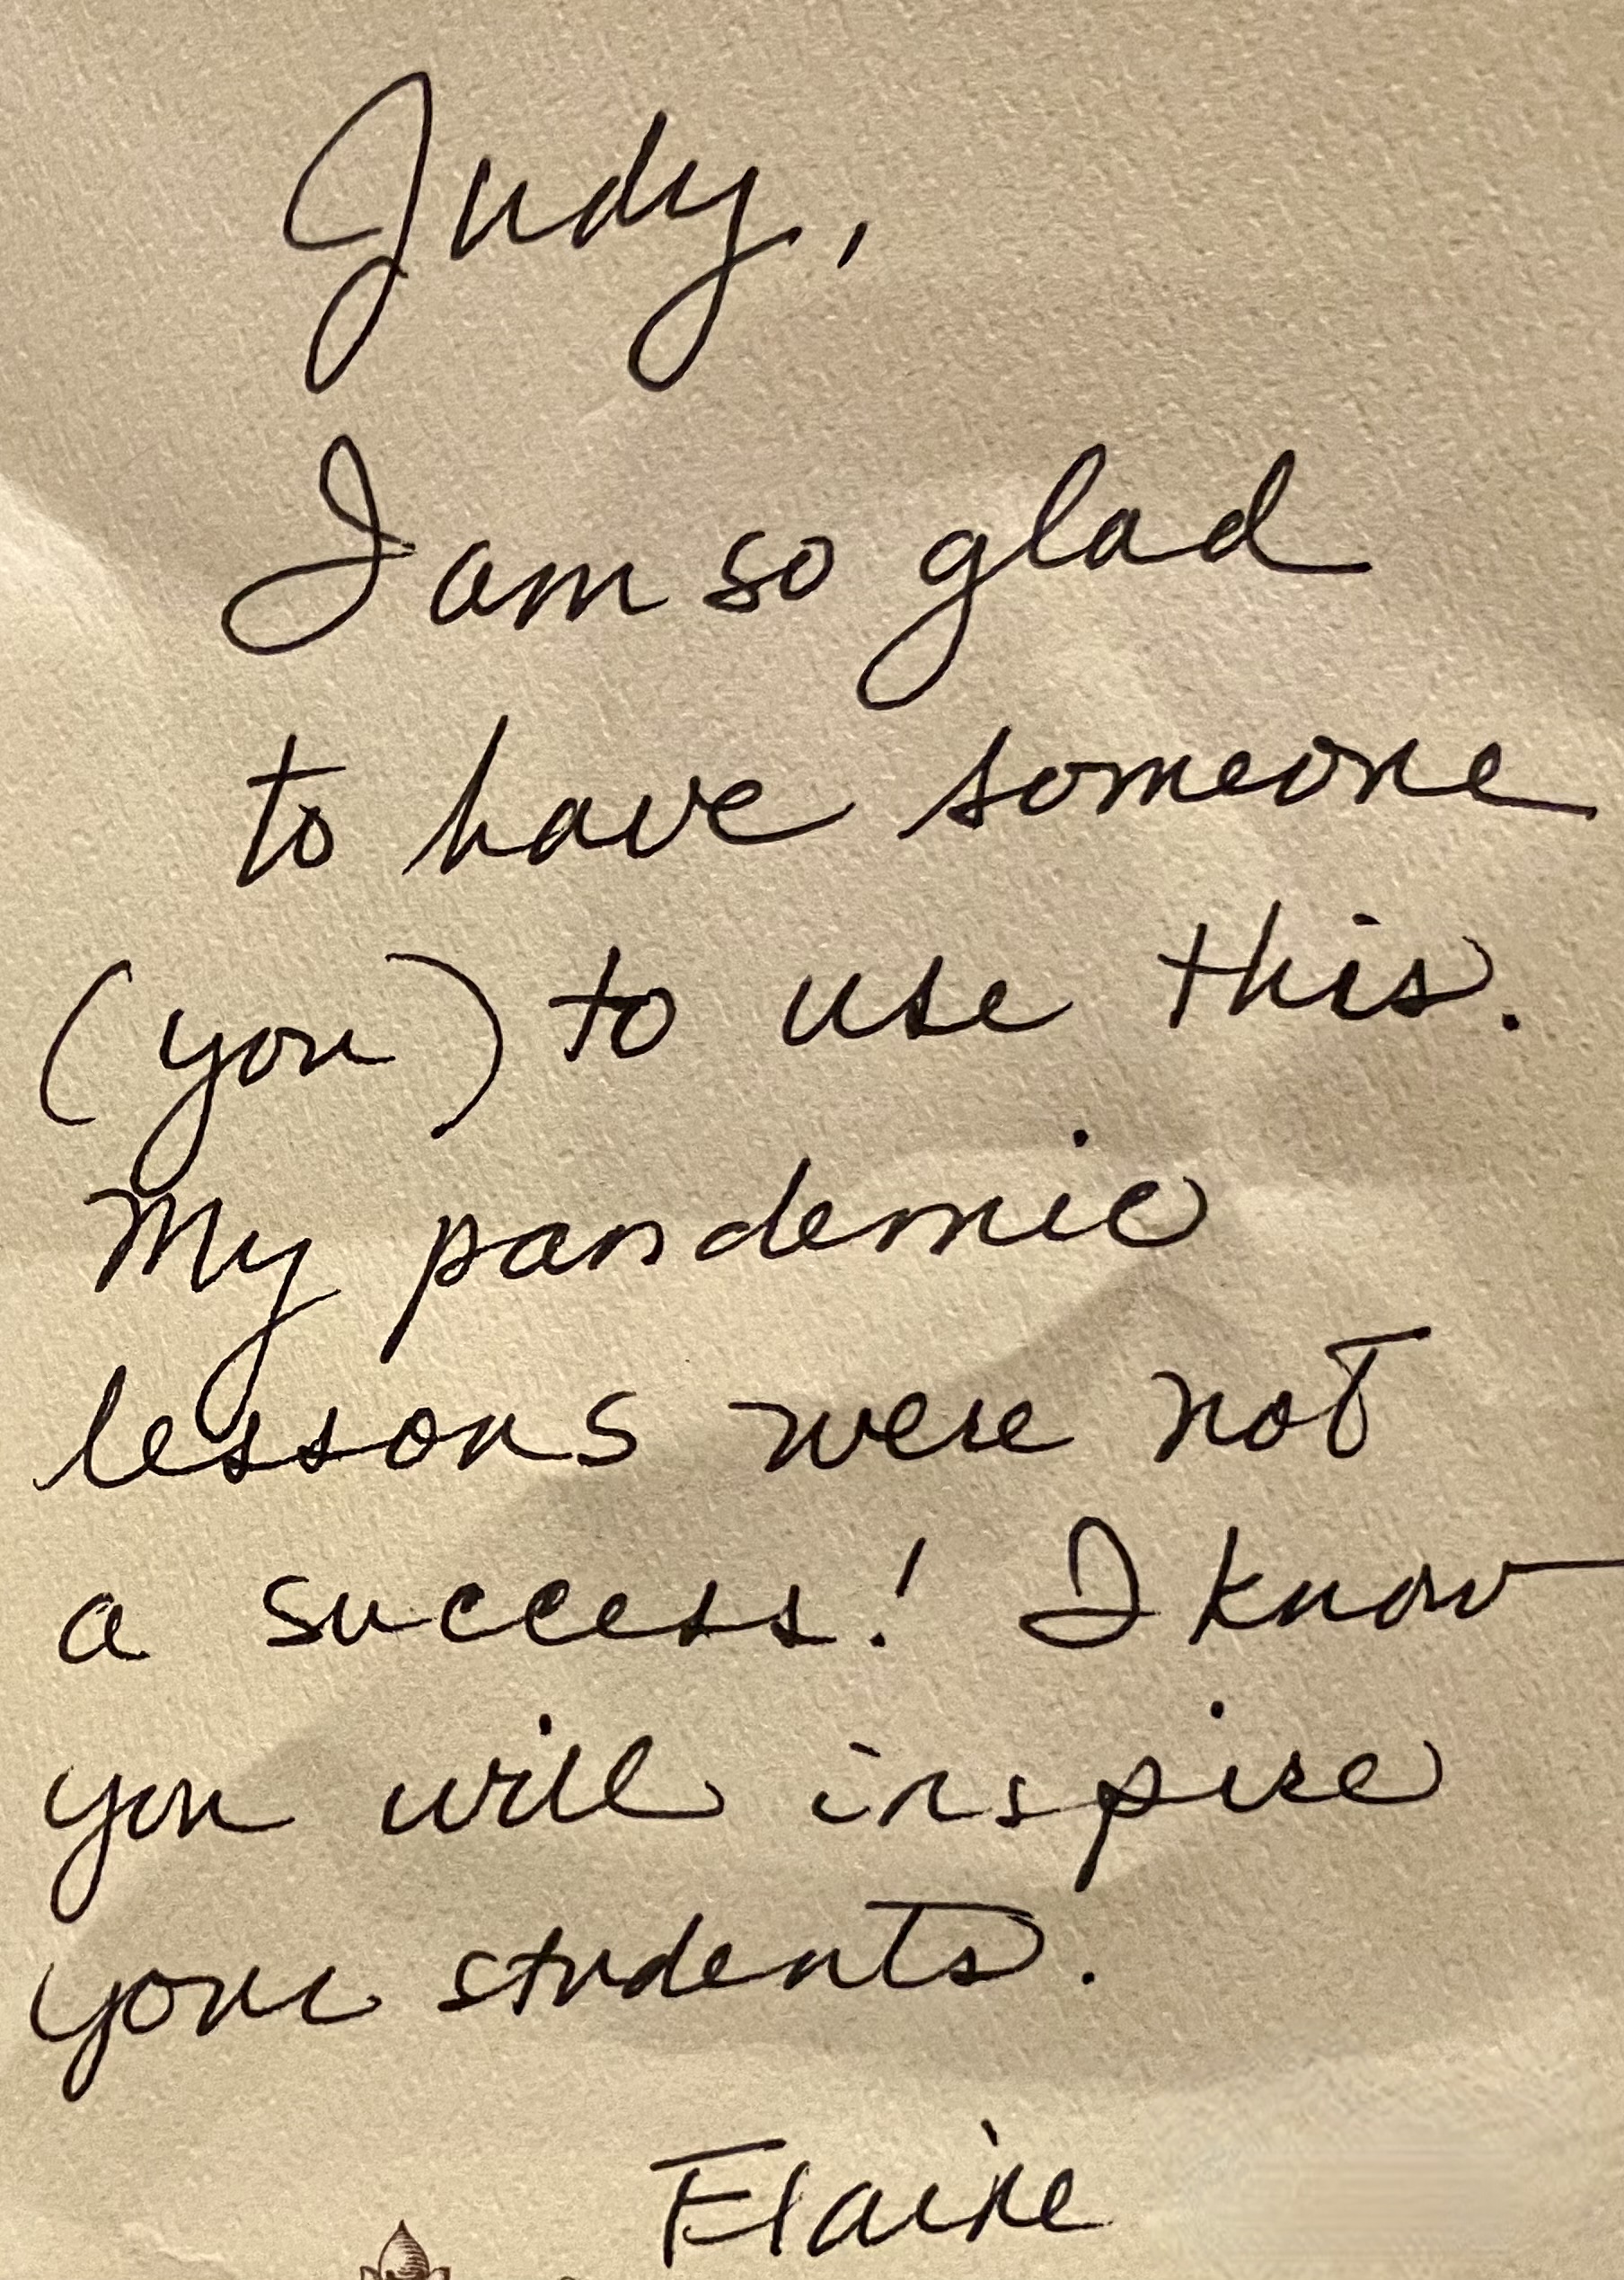 Judy,
I am so glad
to have someone
(you) to use this.
My pandemic
lessons were not
a success! I know
you will inspire
your students.
Elaine